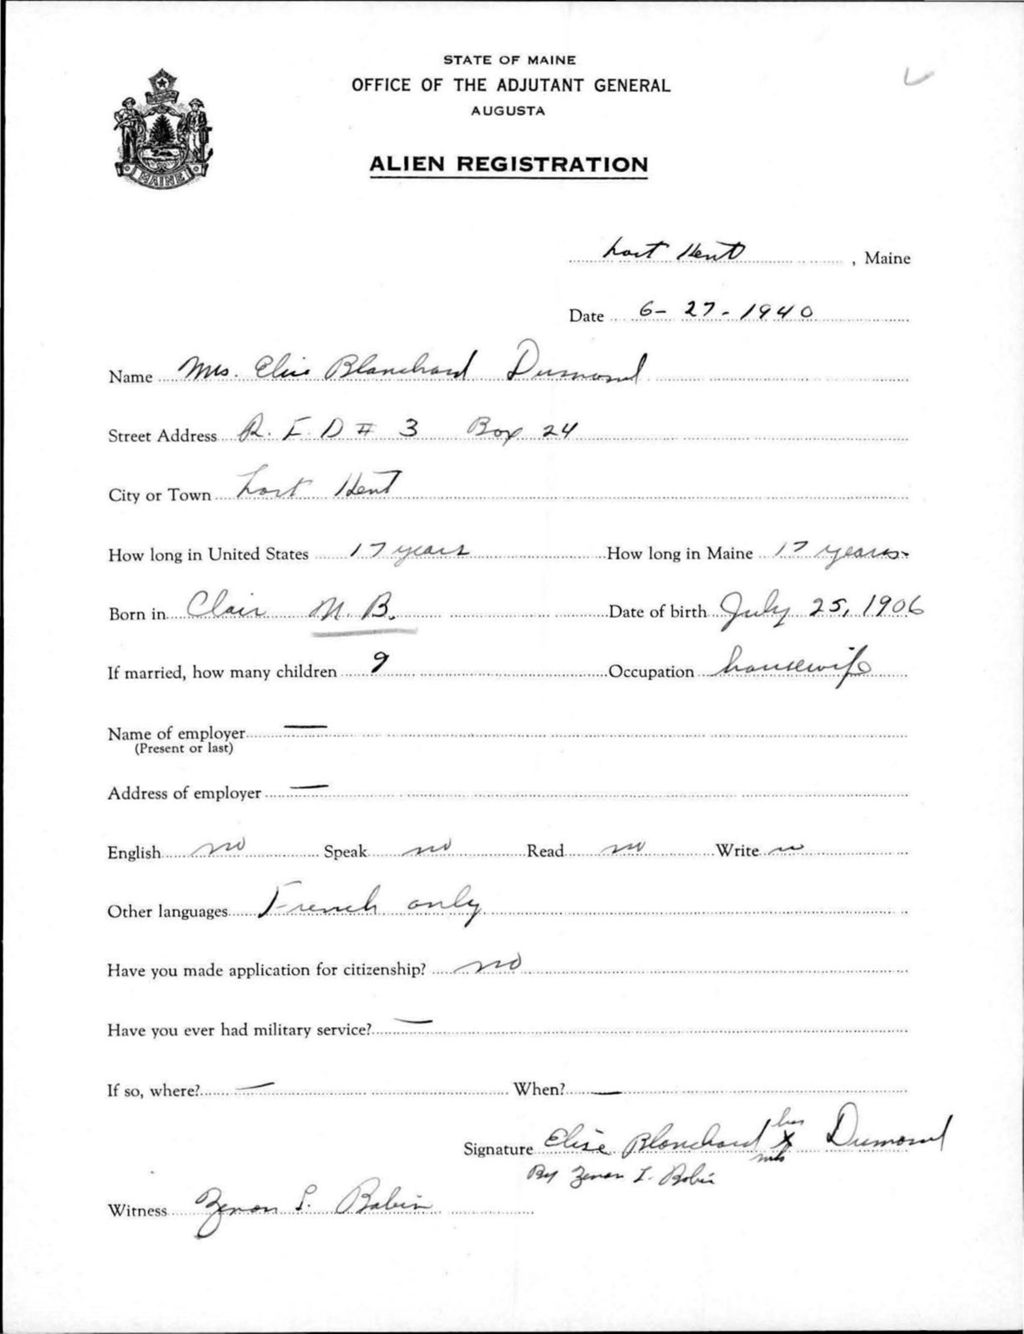 STATE OF MAINE
OFFICE OF THE ADJUTANT GENERAL
AUGUSTA
MAINE
ALIEN REGISTRATION
Fort Kent, Maine
Date 6-27-1940
Name Mrs. Elise Blanchard Dumond
Street Address R.F.D # 3 Box 24
City or Town Fort Kent
How long in United States 17 years How long in Maine 17 years
Born in Clair N.B. Date of birth July 25, 1906
If married, how many children 9 Occupation housewife
Name of employer —
(Present or last)
Address of employer —
English no Speak no Read no Write no
Other languages French only
Have you made application for citizenship? no
Have you ever had military service? —
If so, where? — When? —
her
Signature Elise Blanchard X Dumond
mark
By Zenon L. Babin
Witness Zenon L. Babin